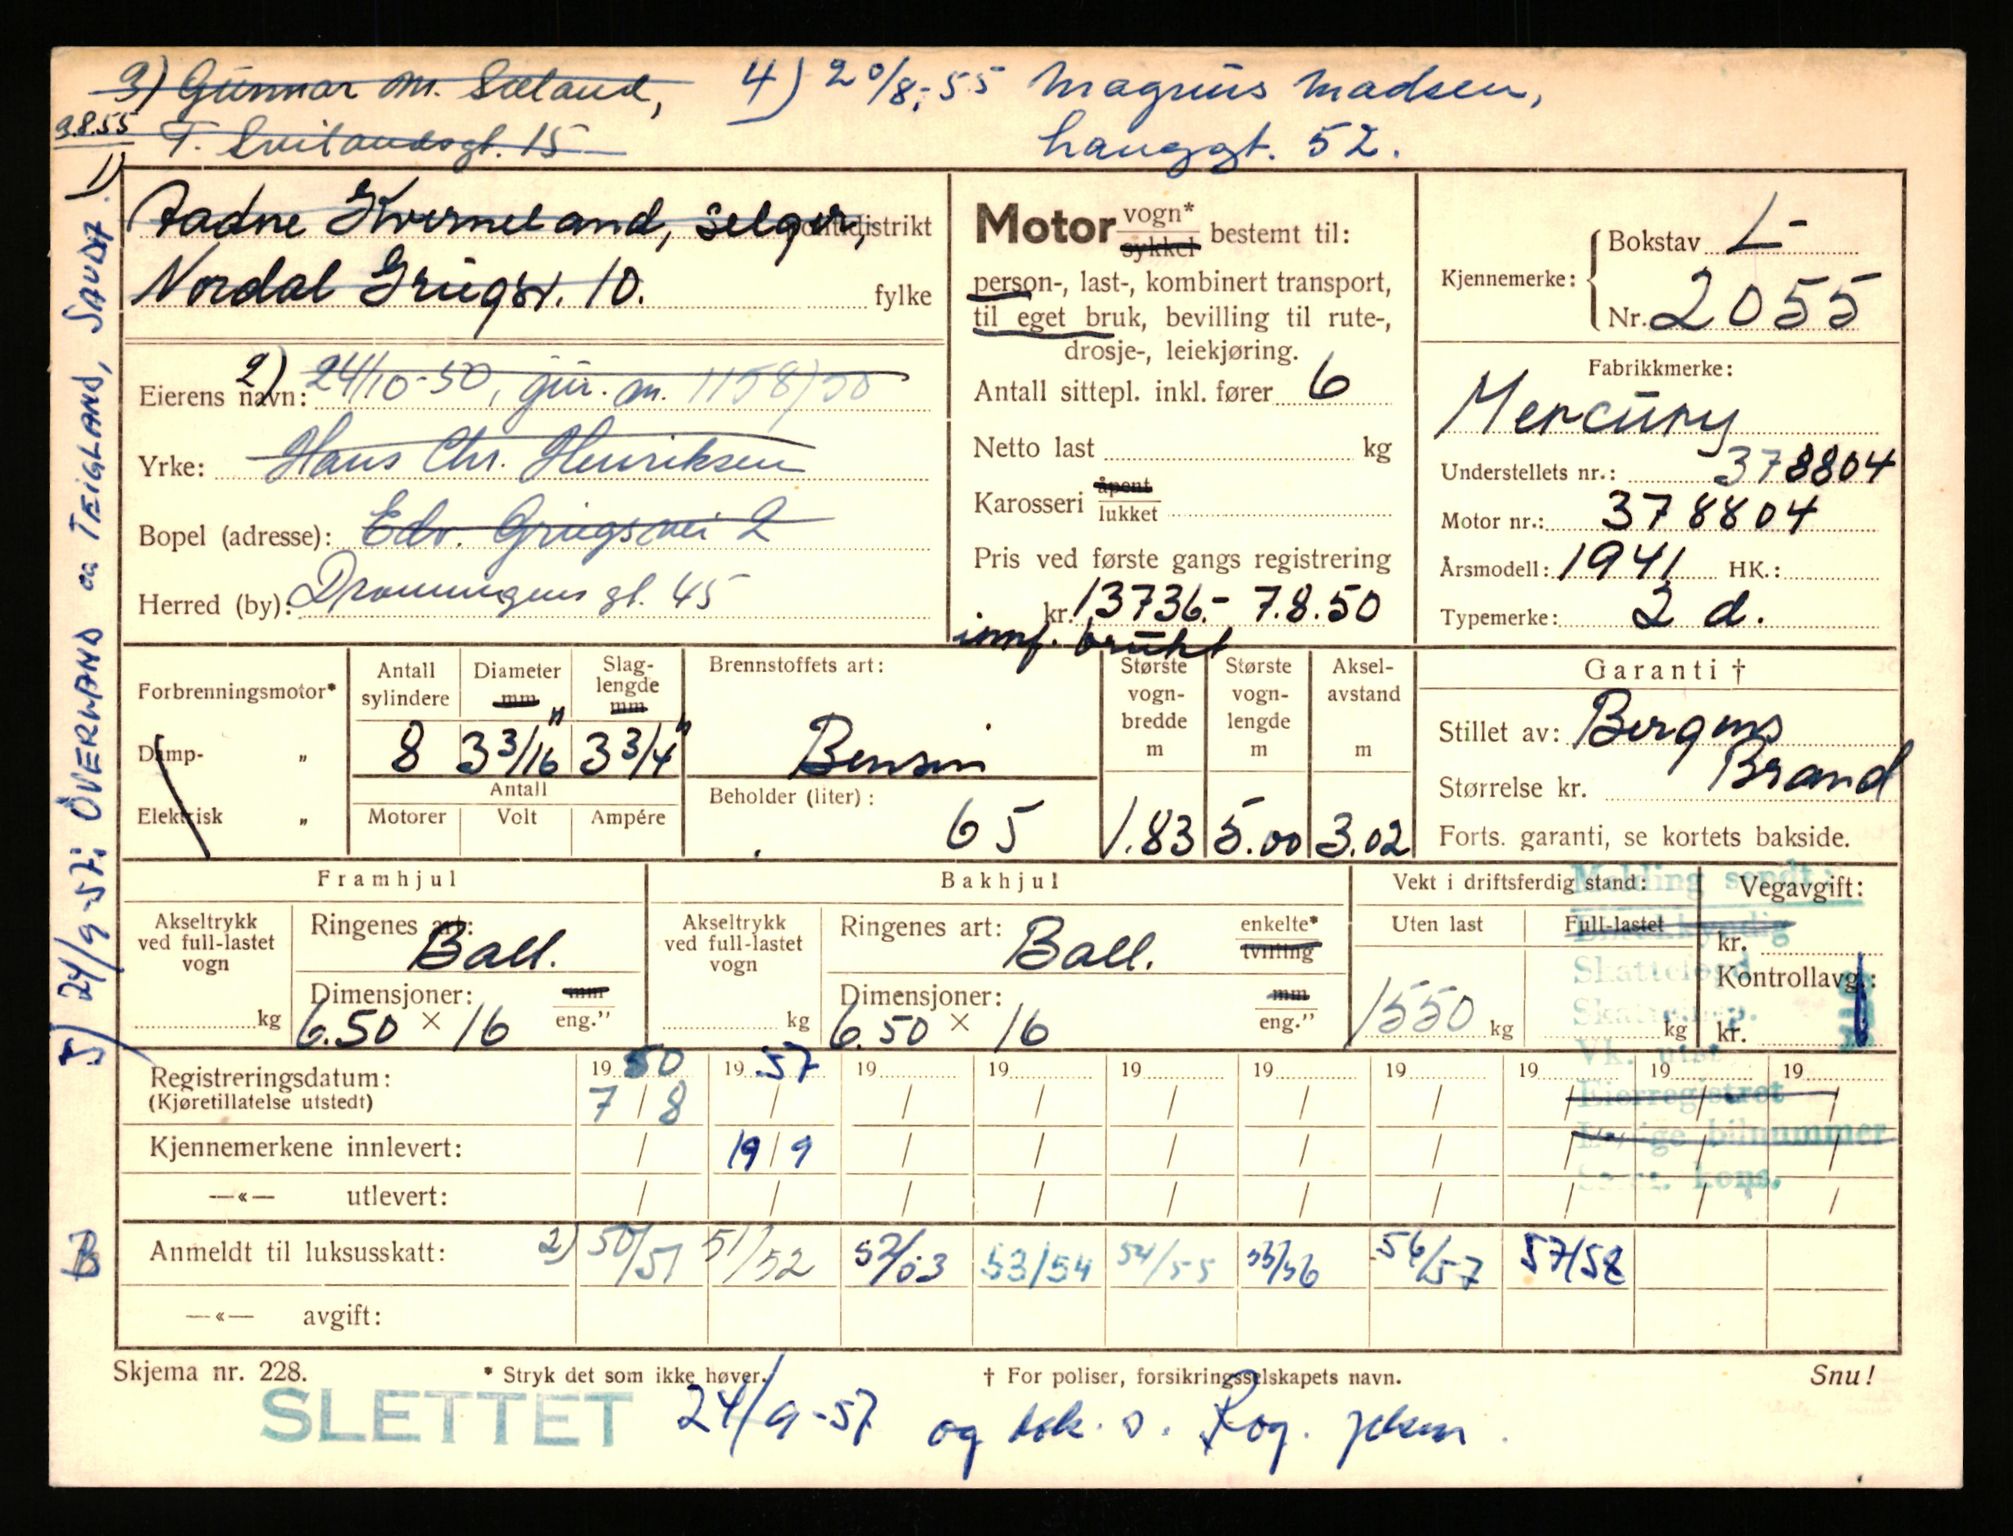 3) Gunnar M. Sæland,
9.8.55 T. Svilandsgt. 15
4) 20/8-55 Magnus Madsen,
Hauggt. 52.
1) Aadne Kverneland, selger, politidistrikt
Nordal Griegsv. 10. fylke
Eierens navn: 2) 24/10-50, jur. m. 1158/50
Yrke: Hans Chr. Henriksen
Bopel (adresse): Edv. Griegsvei 2
Herred (by): Dronningens gt. 45
Motor vogn*
sykkel bestemt til:
person-, last-, kombinert transport,
til eget bruk, bevilling til rute-,
drosje-, leiekjøring.
Antall sittepl. inkl. fører 6
Netto last kg
Karosseri åpent
lukket
Pris ved første gangs registrering
kr. 13736.- 7.8.50
innf. brukt
Kjennemerke: Bokstav L-
Nr. 2055
Fabrikkmerke:
Mercury
Understellets nr.: 378804
Motor nr.: 378804
Årsmodell: 1941 HK.:
Typemerke: 2 d.
Forbrenningsmotor*
Damp- „
Elektrisk „
Antall sylindere 8
Diameter mm 3 3/16"
Slaglengde mm 3 3/4"
Antall
Motorer Volt Ampére
Brennstoffets art:
Bensin
Beholder (liter):
65
Største vognbredde m 1.83
Største vognlengde m 5.00
Akselavstand m 3.02
Garanti †
Stillet av: Bergens
Brand
Størrelse kr.
Forts. garanti, se kortets bakside.
Framhjul
Akseltrykk ved full-lastet vogn kg
Ringenes art: Ball.
Dimensjoner: mm
6.50 × 16 eng."
Bakhjul
Akseltrykk ved full-lastet vogn kg
Ringenes art: Ball. enkelte*
tvilling
Dimensjoner: mm
6.50 × 16 eng."
Vekt i driftsferdig stand:
Uten last Full-lastet
1550 kg kg
Vegavgift:
kr.
Kontrollavg.:
kr.
Melding sendt:
Skattefogd
Vk. utst
Eierregistret
Ledige bilnummer
kons.
Registreringsdatum: 19 50 19 57 19 19 19 19 19 19 19 19
(Kjøretillatelse utstedt) 7/8 / / / / / / / / /
Kjennemerkene innlevert: / 19/9 / / / / / / / /
—«— utlevert: / / / / / / / / / /
Anmeldt til luksusskatt: 2) 50/51 51/52 52/53 53/54 54/55 55/56 56/57 57/58
—«— avgift:
Skjema nr. 228. * Stryk det som ikke høver. † For poliser, forsikringsselskapets navn. Snu!
SLETTET 24/9-57 og
5) 24/9-57: ÖVERLAND og TEIGLAND, SAUDA.
B